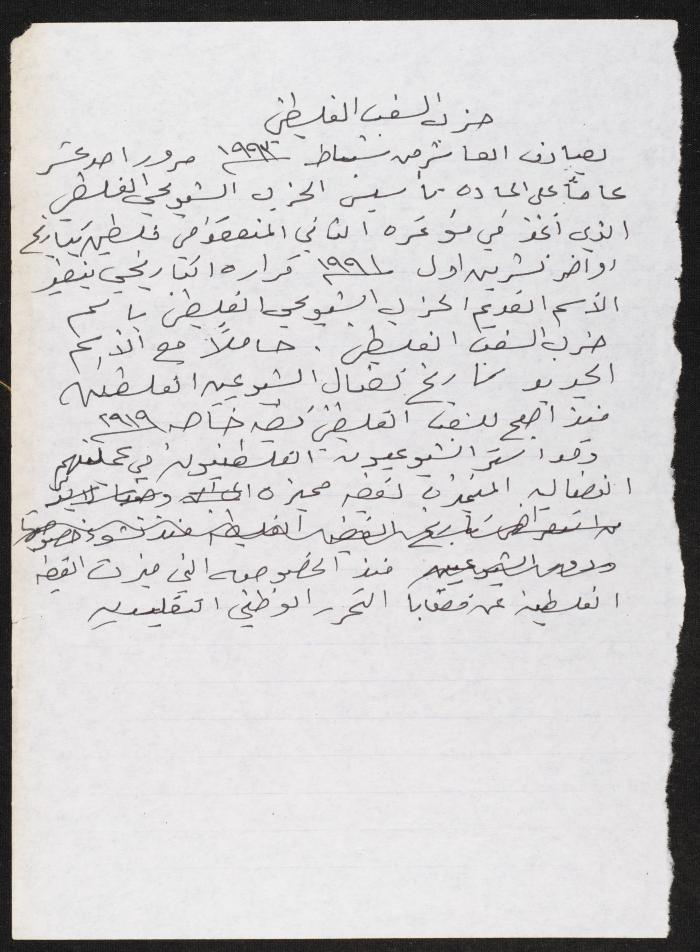 حزب الشعب الفلسطيني
يصادف العاشر من شباط ١٩٩٣ مرور احد عشر
عاماً على اعادة تأسيس الحزب الشيوعي الفلسطيني
الذي اتخذ في مؤتمره الثاني المنعقد في فلسطين بتاريخ
اواخر تشرين اول ١٩٩١ قراره التاريخي بتغيير
الاسم القديم الحزب الشيوعي الفلسطيني باسم
حزب الشعب الفلسطيني . حاملاً مع الاسم
الجديد تاريخ نضال الشيوعيين الفلسطينيين
منذ اصبح للشعب الفلسطيني قضيه خاصه ١٩١٩
وقد استمر الشيوعيون الفلسطينيون في عمليتهم
النضاليه المتميزة لقضيه مميزه
تاريخ القضيه الفلسطينيه منذ نشوء
ودور الشيوعيين منذ الخصوصيه التي ميزت القضيه
الفلسطينيه عن قضايا التحرر الوطني التقليديه